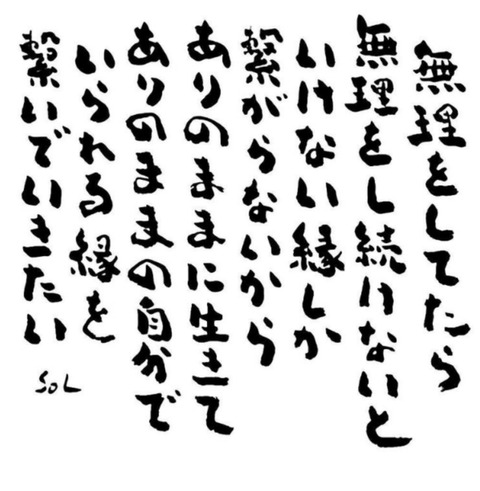 無理をしてたら
無理をし続けないと
いけない縁しか
繋がらないから
ありのままに生きて
ありのままの自分で
いられる縁を
繋いでいきたい
SOL